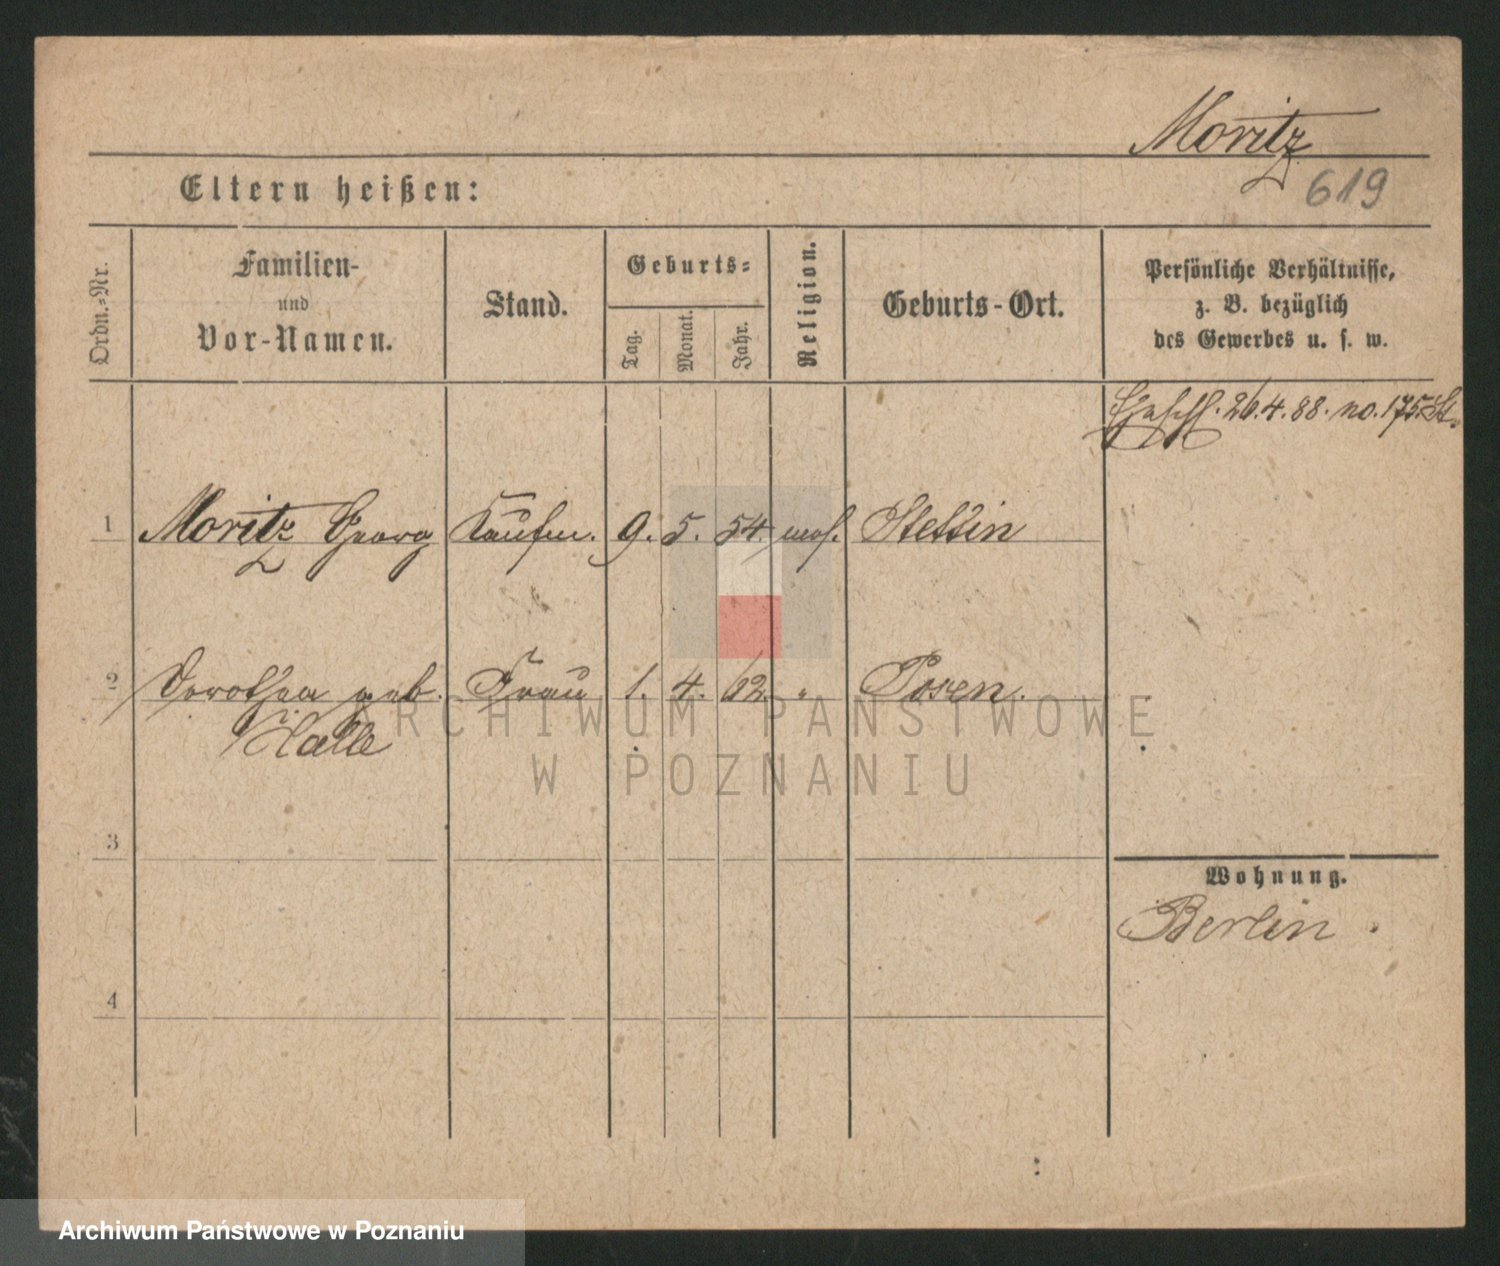 Moritz
619
Eltern heißen:
Ordn.-Nr.
Familien-
und
Vor-Namen.
Stand.
Geburts-
Tag.
Monat.
Jahr.
Religion.
Geburts-Ort.
Persönliche Verhältnisse,
z. B. bezüglich
des Gewerbes u. s. w.
26.4.88. no. 175. St.
1 Moritz Georg Kaufm. 9. 5. 54. mos. Stettin
2 Dorothea geb. Frau 1. 4. 62. " Posen.
Halle
3
4
Wohnung.
Berlin.
ARCHIWUM PAŃSTWOWE
W POZNANIU
Archiwum Państwowe w Poznaniu